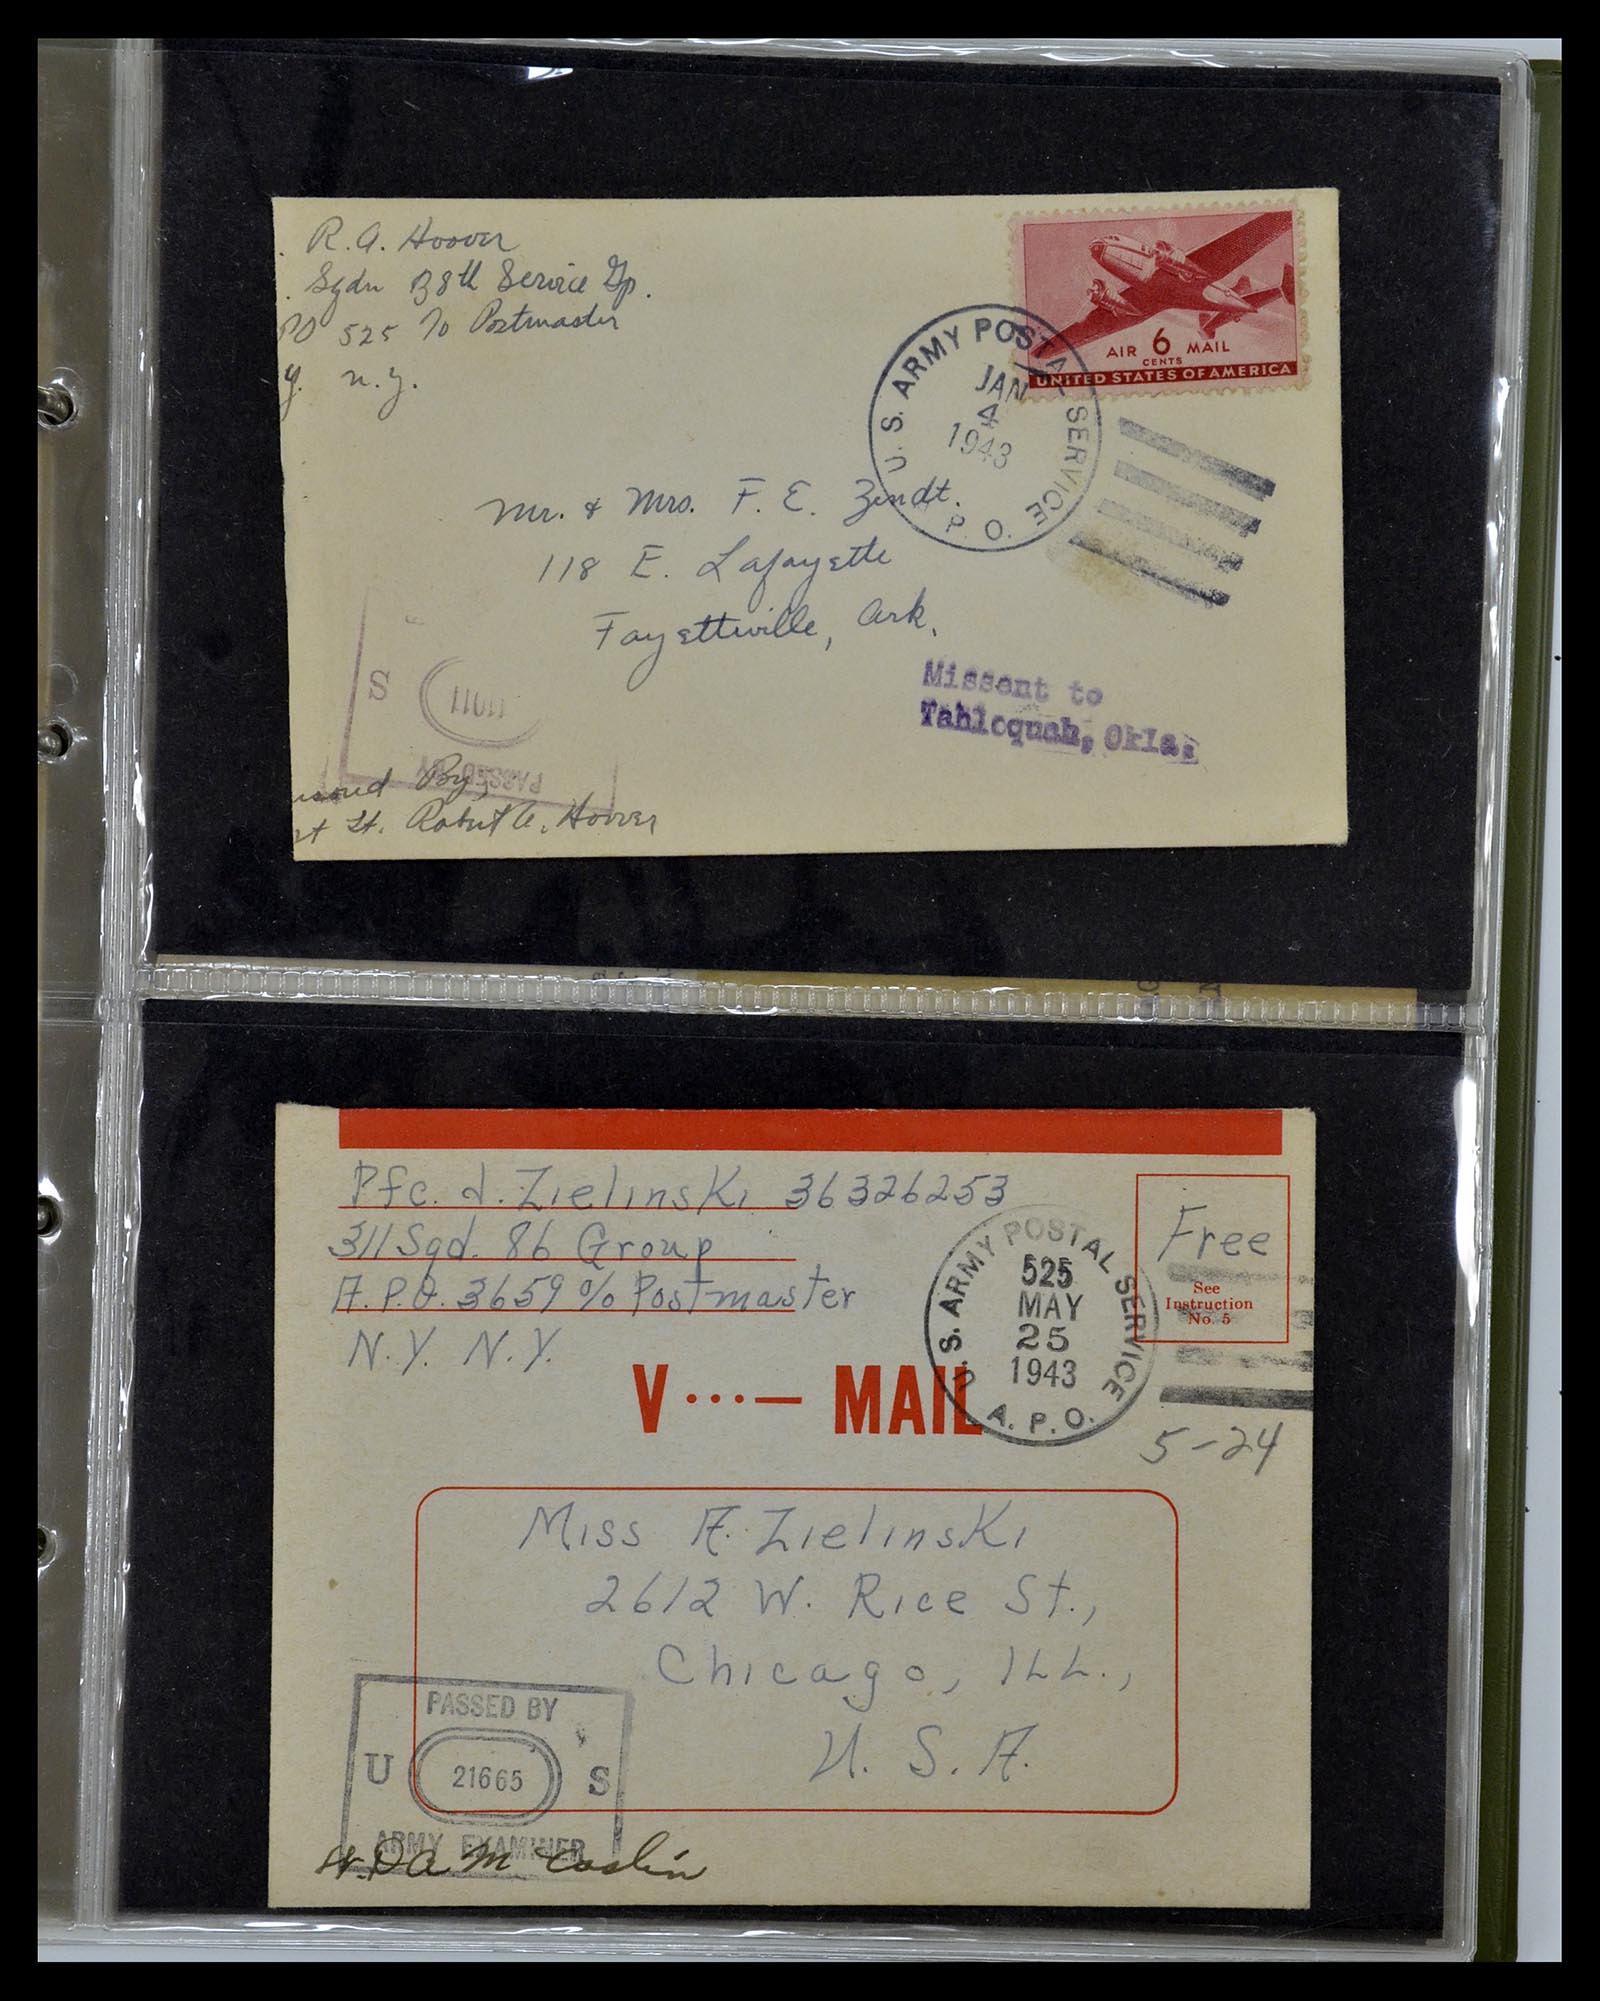 . R. A. Hoover
. Sqdn 38th Service Gp.
PO 525 % Postmaster
Y. N.Y.
AIR 6 MAIL
CENTS
UNITED STATES OF AMERICA
U. S. ARMY POSTAL SERVICE
JAN
4
1943
P. O.
Mr. & Mrs. F. E. Zindt.
118 E. Lafayette
Fayettiville, Ark.
S
PASSED BY
Missent to
Tahlequah, Okla.
By,
Lt. Robert A. Hoover
Pfc. J. Zielinski 36326253
311 Sqd. 86 Group
A.P.O. 3659 % Postmaster
N.Y. N.Y.
Free
See
Instruction
No. 5
U. S. ARMY POSTAL SERVICE
525
MAY
25
1943
A. P. O.
V ...— MAIL
5-24
Miss A. Zielinski
2612 W. Rice St.,
Chicago, ILL.,
U. S. A.
PASSED BY
U 21665 S
ARMY EXAMINER